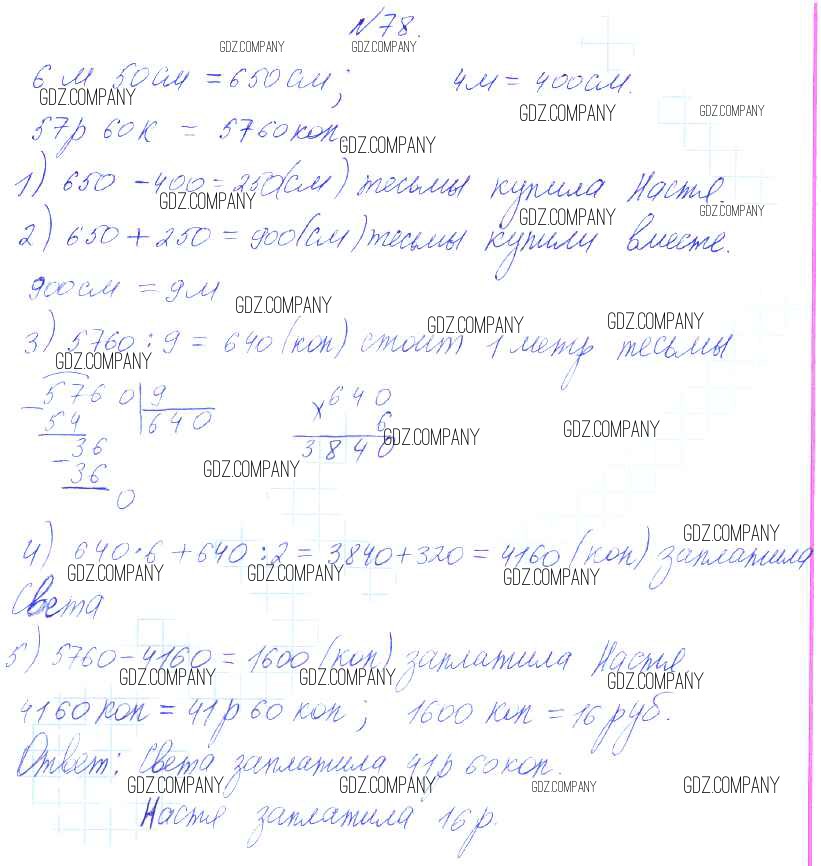 №78.
GDZ.COMPANY GDZ.COMPANY
6 м 50 см = 650 см; 4 м = 400 см.
GDZ.COMPANY GDZ.COMPANY GDZ.COMPANY
57р 60к = 5760 коп
GDZ.COMPANY
1) 650 - 400 = 250(см) тесьмы купила Настя.
GDZ.COMPANY GDZ.COMPANY GDZ.COMPANY
2) 650 + 250 = 900(см) тесьмы купили вместе.
900 см = 9 м
GDZ.COMPANY GDZ.COMPANY GDZ.COMPANY
3) 5760 : 9 = 640 (коп) стоит 1 метр тесьмы
GDZ.COMPANY
- 5760 | 9 × 640
54 640 6
GDZ.COMPANY GDZ.COMPANY
- 36 3840
36 GDZ.COMPANY
0
GDZ.COMPANY
4) 640·6 + 640 : 2 = 3840 + 320 = 4160 (коп) заплатила
GDZ.COMPANY GDZ.COMPANY GDZ.COMPANY
Света
5) 5760 - 4160 = 1600 (коп) заплатила Настя.
GDZ.COMPANY GDZ.COMPANY GDZ.COMPANY
4160 коп = 41 р 60 коп; 1600 коп = 16 руб.
Ответ: Света заплатила 41р 60 коп.
GDZ.COMPANY GDZ.COMPANY GDZ.COMPANY GDZ.COMPANY
Настя заплатила 16 р.